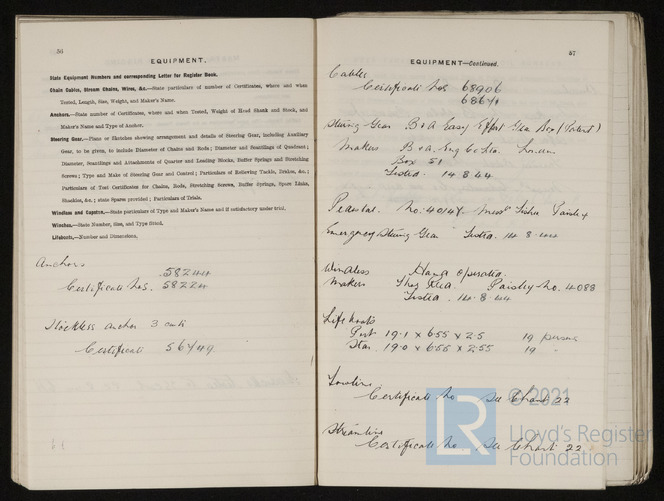 56
EQUIPMENT.
State Equipment Numbers and corresponding Letter for Register Book.
Chain Cables, Stream Chains, Wires, &c.—State particulars of number of Certificates, where and when
Tested, Length, Size, Weight, and Maker's Name.
Anchors.—State number of Certificates, where and when Tested, Weight of Head Shank and Stock, and
Maker's Name and Type of Anchor.
Steering Gear.—Plans or Sketches showing arrangement and details of Steering Gear, including Auxiliary
Gear, to be given, to include Diameter of Chains and Rods; Diameter and Scantlings of Quadrant;
Diameter, Scantlings and Attachments of Quarter and Leading Blocks, Buffer Springs and Stretching
Screws; Type and Make of Steering Gear and Control; Particulars of Relieving Tackle, Brakes, &c.;
Particulars of Test Certificates for Chains, Rods, Stretching Screws, Buffer Springs, Spare Links,
Shackles, &c.; state Spares provided; Particulars of Trials.
Windlass and Capstan.—State particulars of Type and Maker's Name and if satisfactory under trial.
Winches.—State Number, Size, and Type fitted.
Lifeboats.—Number and Dimensions.
Anchors
58244
Certificate Nos. 58224
Stockless anchor 3 cwts
Certificate 56749
57
EQUIPMENT—Continued.
Cables
Certificate Nos 68906
Steering Gear B & A Easy Effort Gear Box (Patent)
Makers B & A. Eng Co Ltd.
Box 51
Tested. 14.8.44
No.
Emergency Steering Gear Tested. 14.8.44
Windlass Hand Operated.
Makers Paisley No. 4088
Tested. 14.8.44
Life boats
Port 19.1 x 6.55 x 2.5 19 persons
Star 19.0 x 6.55 x 2.55 19 "
Towline
Certificate No See Chart 22
Streamline
Certificate No See Chart 22
LR © 2021
Lloyd's Register
Foundation